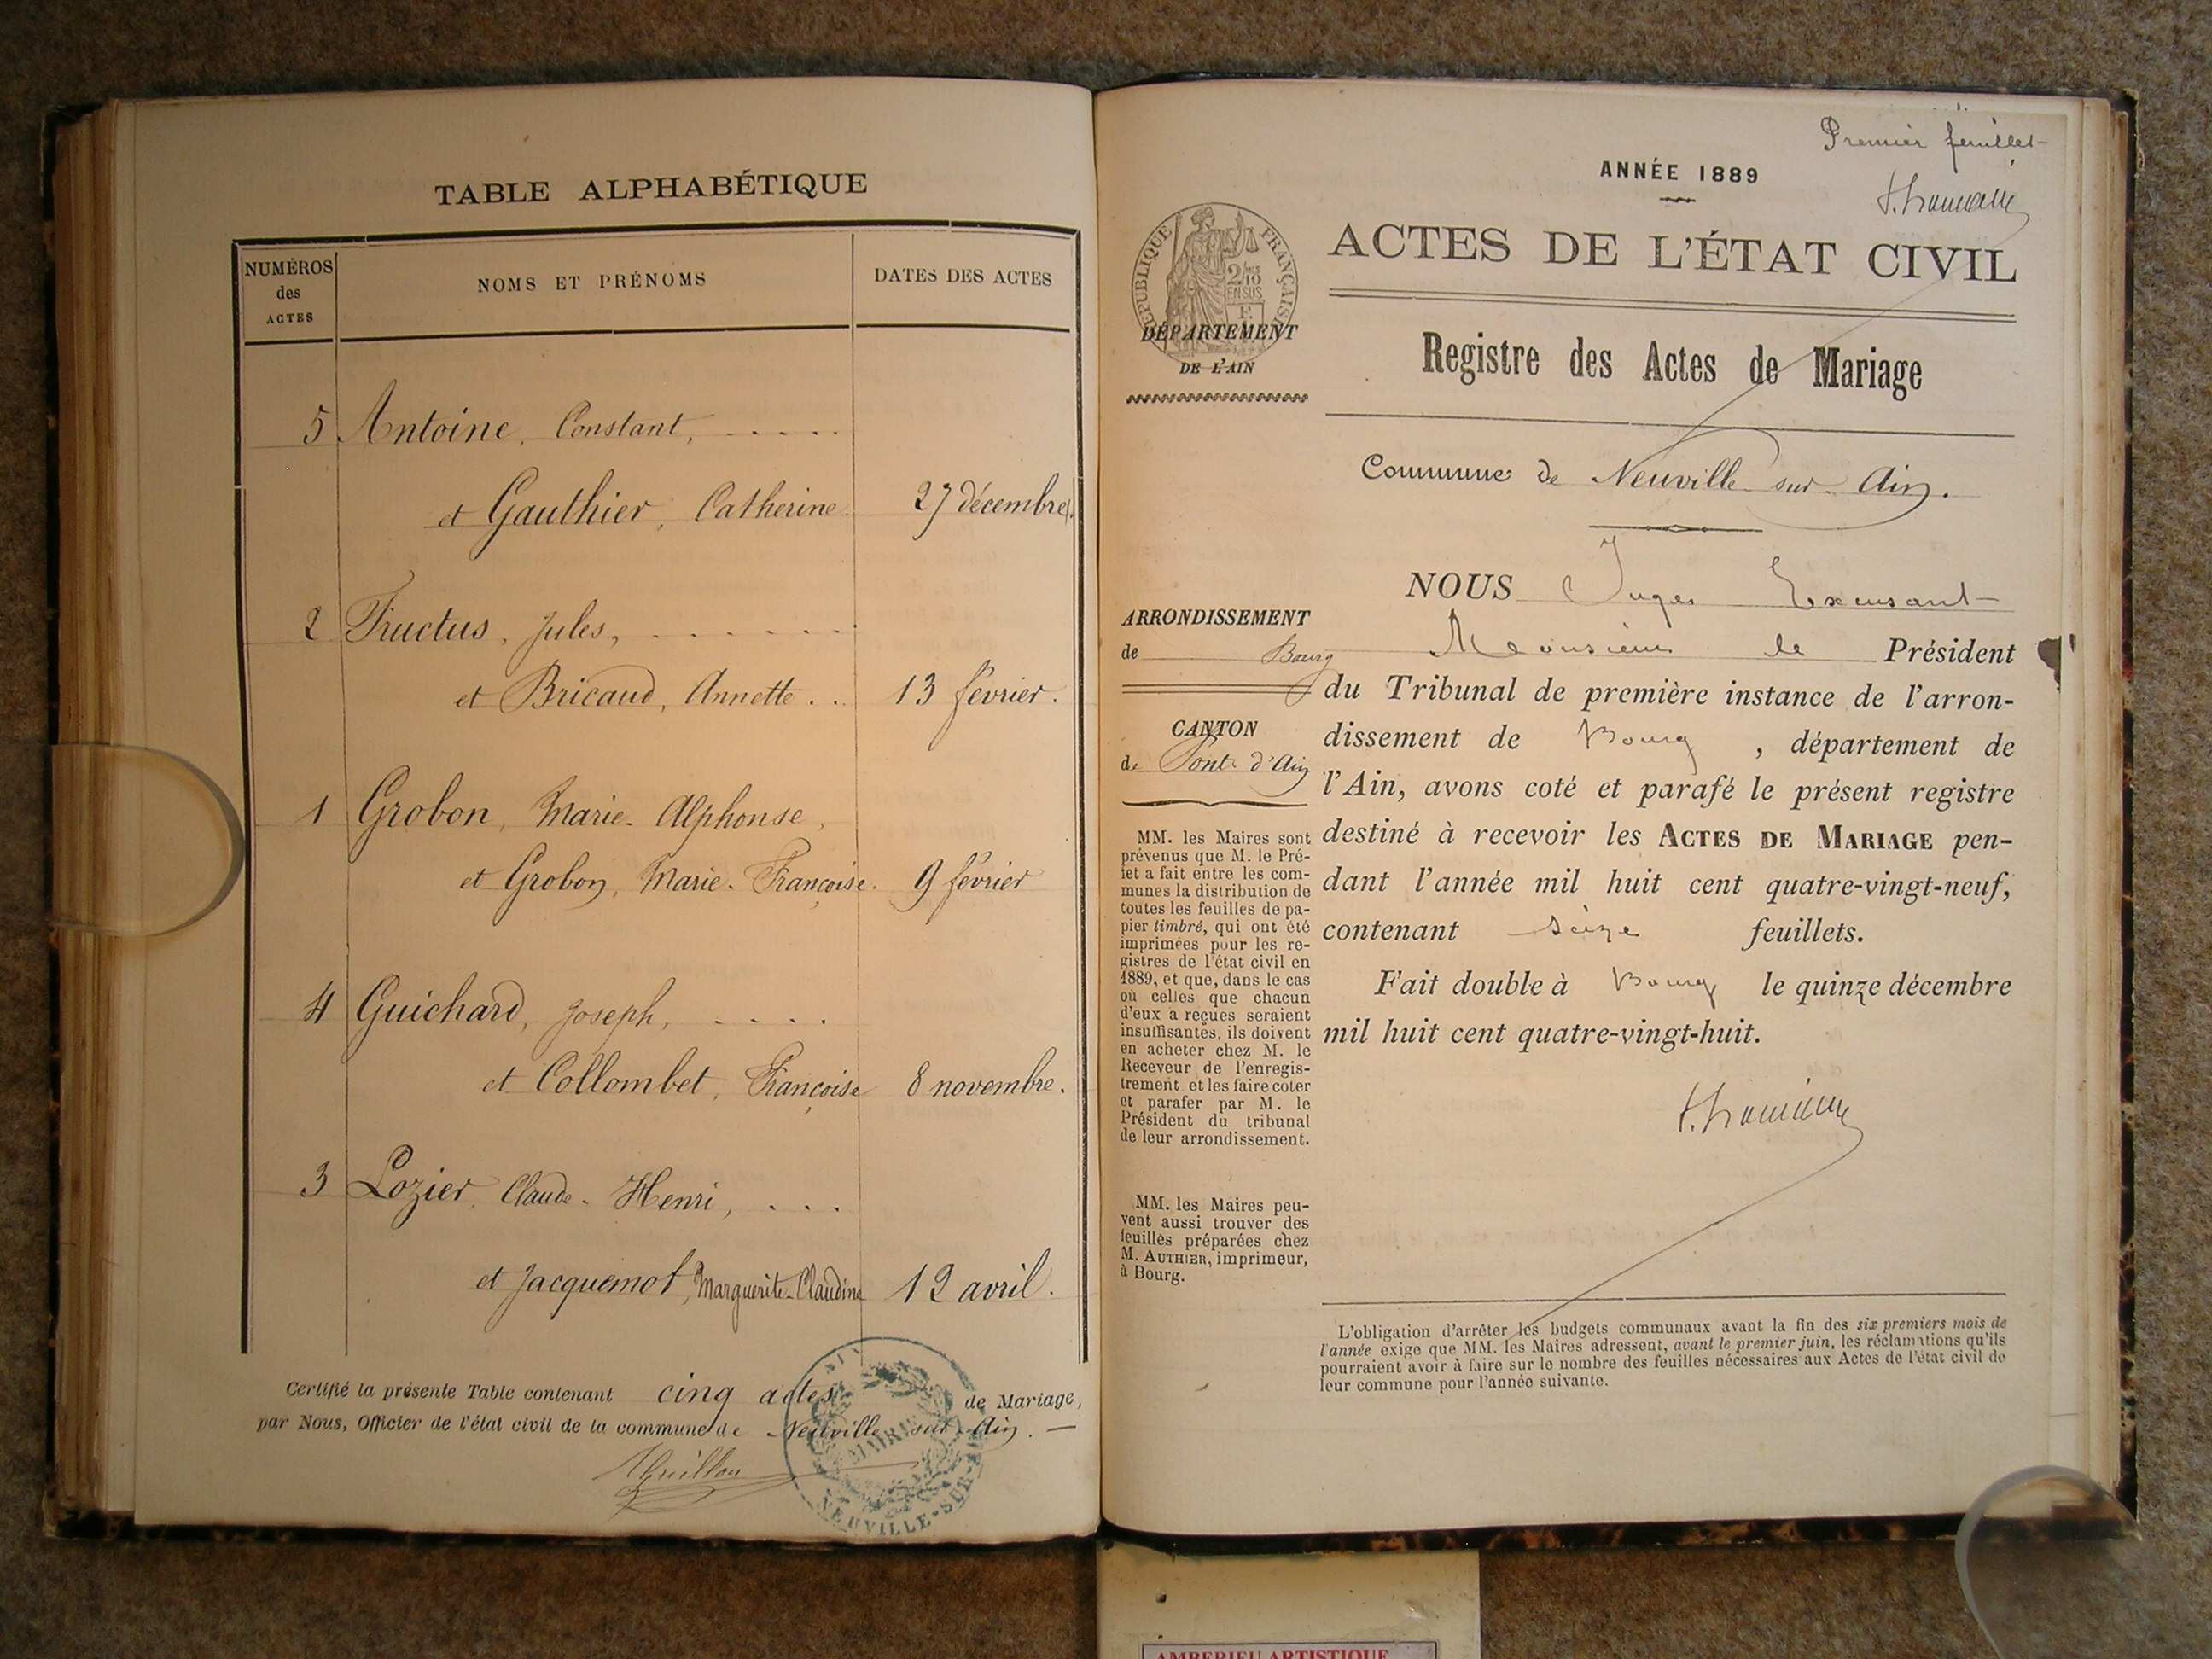 TABLE ALPHABÉTIQUE
NUMÉROS
des
ACTES
NOMS ET PRÉNOMS
DATES DES ACTES
5 Antoine, Constant, .....
et Gauthier, Catherine. 27 décembre.
2 Fructus, Jules, .......
et Bricaud, Annette... 13 février.
1 Grobon, Marie-Alphonse,
et Grobon, Marie-Françoise. 9 février
4 Guichard, Joseph, ....
et Collombet, Françoise 8 novembre.
3 Lozier, Claude-Henri, ...
et Jacquemot, Marguerite-Claudine 12 avril.
Certifié la présente Table contenant cinq actes de Mariage,
par Nous, Officier de l'état civil de la commune de Neuville sur Ain. —
MAIRIE
NEUVILLE-SUR-AIN
AIN
Premier feuillet
ANNÉE 1889
ACTES DE L'ÉTAT CIVIL
RÉPUBLIQUE FRANÇAISE
2/10
EN SUS
DÉPARTEMENT
DE L'AIN
Registre des Actes de Mariage
Commune de Neuville sur Ain.
ARRONDISSEMENT
de Bourg
CANTON
de Pont d'Ain
MM. les Maires sont
prévenus que M. le Pré-
fet a fait entre les com-
munes la distribution de
toutes les feuilles de pa-
pier timbré, qui ont été
imprimées pour les re-
gistres de l'état civil en
1889, et que, dans le cas
où celles que chacun
d'eux a reçues seraient
insuffisantes, ils doivent
en acheter chez M. le
Receveur de l'enregis-
trement et les faire coter
et parafer par M. le
Président du tribunal
de leur arrondissement.
MM. les Maires peu-
vent aussi trouver des
feuilles préparées chez
M. AUTHIER, imprimeur,
à Bourg.
NOUS Juges Excusant
Monsieur le Président
du Tribunal de première instance de l'arron-
dissement de Bourg, département de
l'Ain, avons coté et parafé le présent registre
destiné à recevoir les ACTES DE MARIAGE pen-
dant l'année mil huit cent quatre-vingt-neuf,
contenant seize feuillets.
Fait double à Bourg le quinze décembre
mil huit cent quatre-vingt-huit.
L'obligation d'arrêter les budgets communaux avant la fin des six premiers mois de
l'année exige que MM. les Maires adressent, avant le premier juin, les réclamations qu'ils
pourraient avoir à faire sur le nombre des feuilles nécessaires aux Actes de l'état civil de
leur commune pour l'année suivante.
AMBERIEU ARTISTIQUE